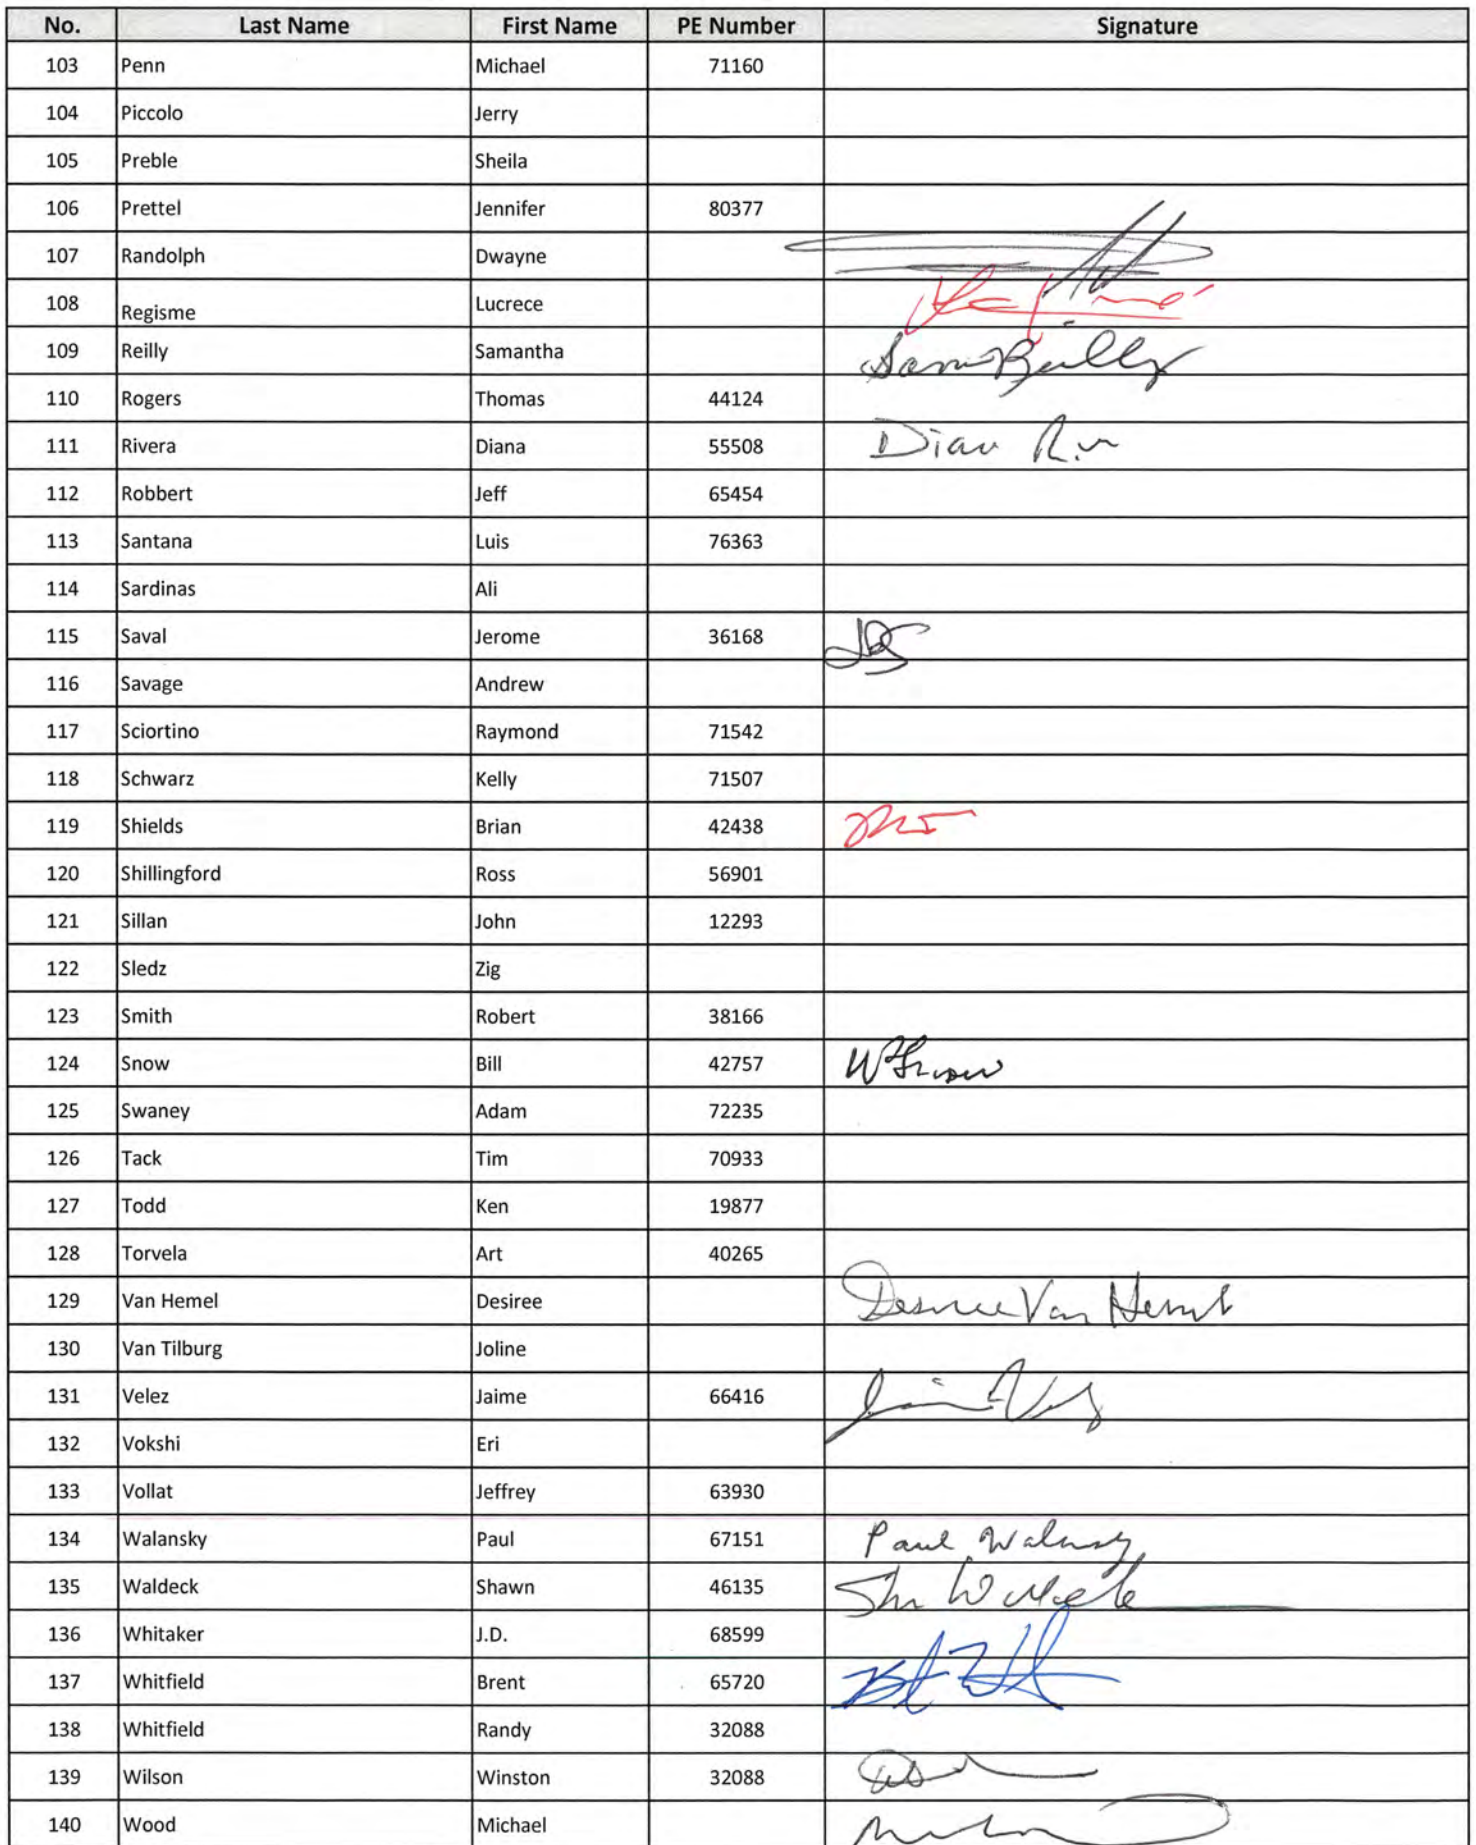 No. Last Name First Name PE Number Signature
103 Penn Michael 71160
104 Piccolo Jerry
105 Preble Sheila
106 Prettel Jennifer 80377
107 Randolph Dwayne
108 Regisme Lucrece
109 Reilly Samantha Sam Reilly
110 Rogers Thomas 44124
111 Rivera Diana 55508
112 Robbert Jeff 65454
113 Santana Luis 76363
114 Sardinas Ali
115 Saval Jerome 36168
116 Savage Andrew
117 Sciortino Raymond 71542
118 Schwarz Kelly 71507
119 Shields Brian 42438
120 Shillingford Ross 56901
121 Sillan John 12293
122 Sledz Zig
123 Smith Robert 38166
124 Snow Bill 42757
125 Swaney Adam 72235
126 Tack Tim 70933
127 Todd Ken 19877
128 Torvela Art 40265
129 Van Hemel Desiree Desiree Van Hemel
130 Van Tilburg Joline
131 Velez Jaime 66416
132 Vokshi Eri
133 Vollat Jeffrey 63930
134 Walansky Paul 67151 Paul Walansky
135 Waldeck Shawn 46135
136 Whitaker J.D. 68599
137 Whitfield Brent 65720
138 Whitfield Randy 32088
139 Wilson Winston 32088
140 Wood Michael